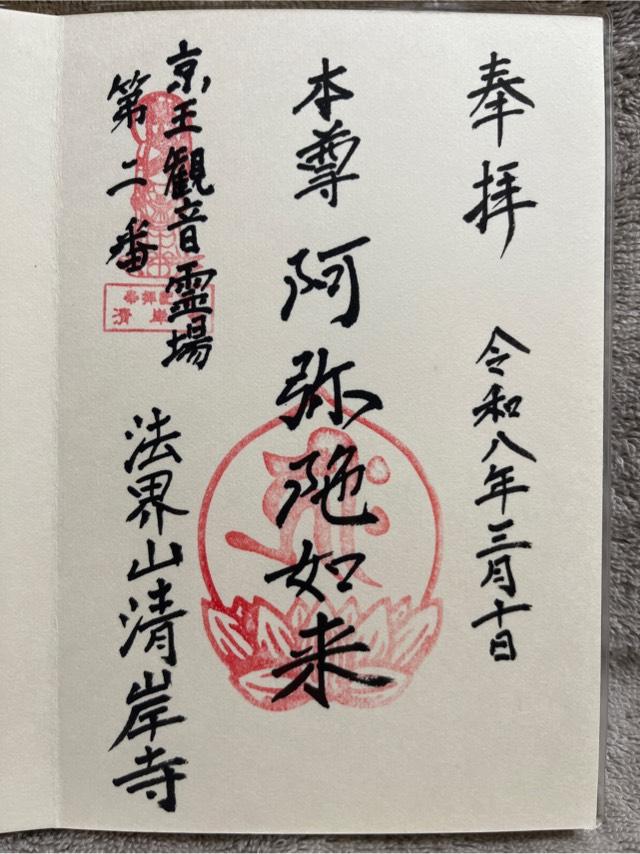 奉拝
令和八年三月十日
本尊
阿弥陀如来
京王観音霊場
第二番
法界山清岸寺